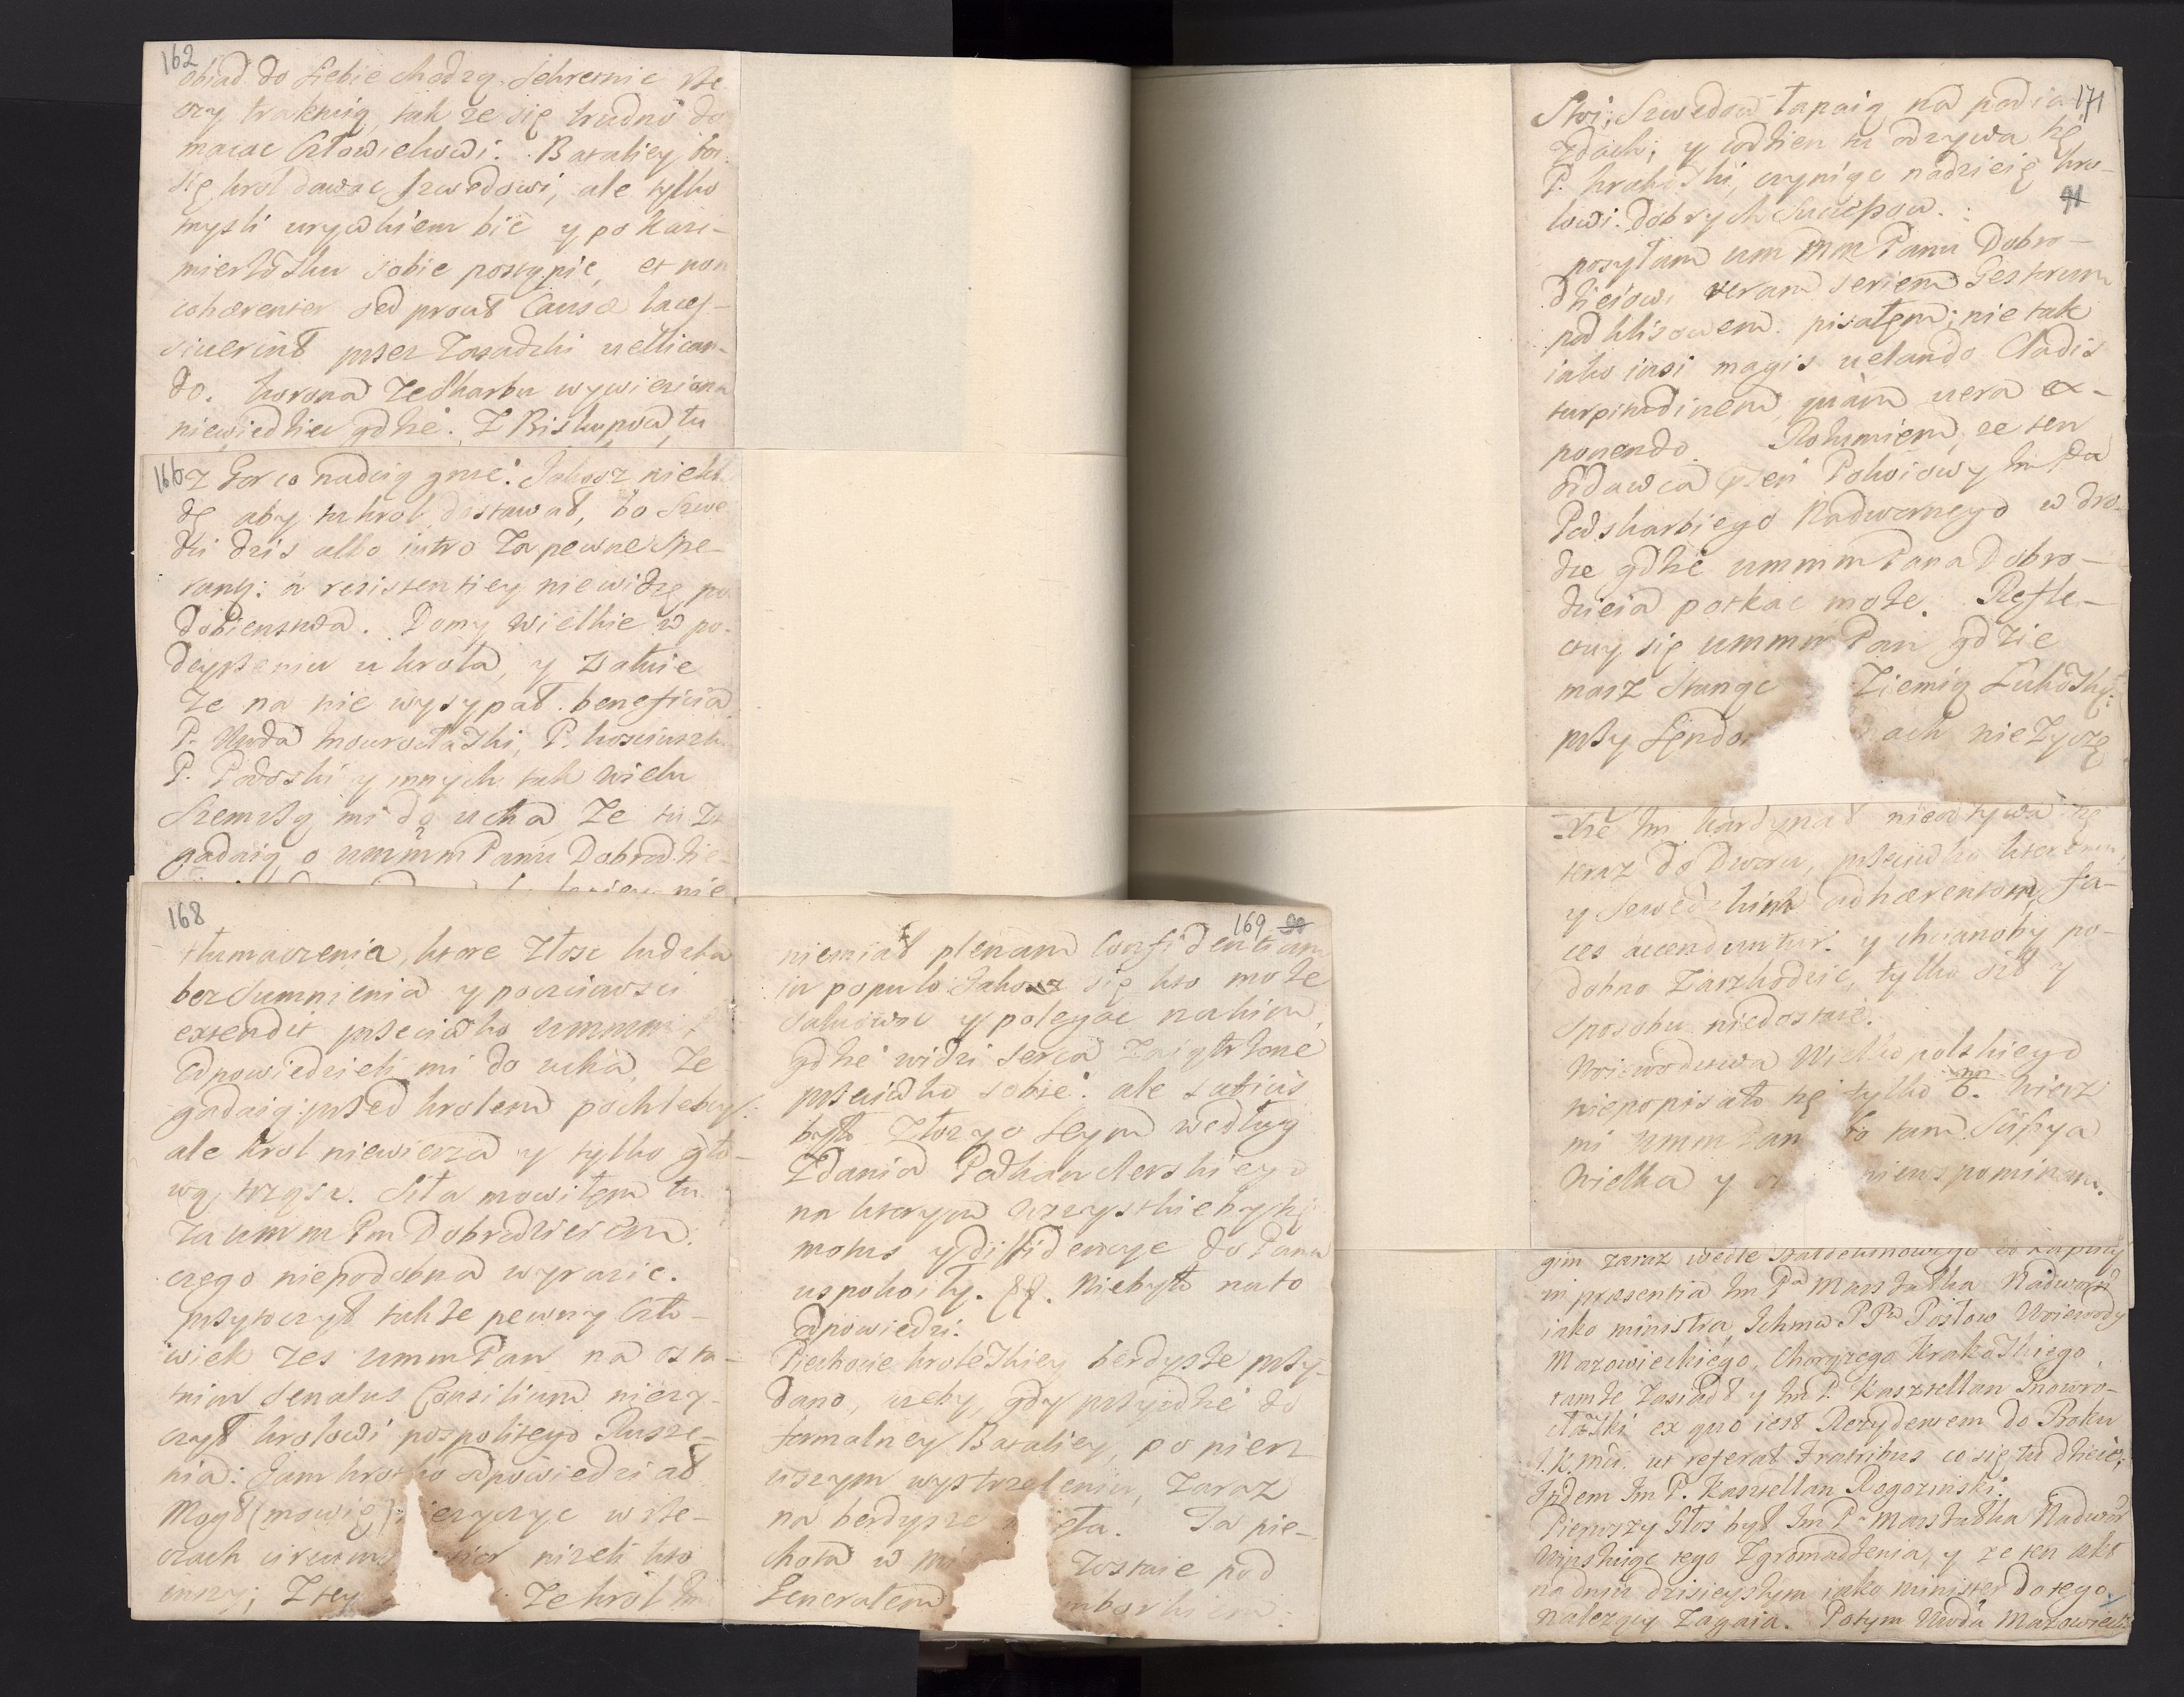 162
obiad do siebie chodzą. Sekretnie rze
czy traktuią, tak ze się trudno do
macac Człowiekowi. Bataliey
się krol dawac Szwedowi, ale tylko
mysli urywkiem bic y po Kazi-
mierzosku sobie postąpic, et non
cohærenter sed prout Causæ laces-
siuerint przez Zasadzki uellican-
do. Korona ze Skarbu wywieziona
niewiedziec gdzie. Z Biskupow tu
166
z Gor co nadciągnąc. Jakosz
aby tu krol dostawał, bo Szwe
dzi dzis albo iutro Zapewne Spe-
rany: a resistentiey niewidzę po
dobienstwa. Domy Wielkie w po-
deyrzeniu u krola, y załuie
ze na nie wysypał beneficia
P. Wwda Inowrocławski, P. Kosciuszk
P. Potoski y innych tak wielu
Szemrzą mi do ucha Ze tu Zle
gadaią o ummm Panu Dobrodzie-
168
tłumaczenia, ktore Złosc ludzka
bez Sumnienia y poczciwosci
extendit przeciwko ummm
Odpowiedzieli mi do ucha, Ze
gadaią przed krolem pochlebcy:
ale krol niewierza y tylko gło-
wą trząsz. Siła mowiłem tu
za umm Pm Dobrodzieiem.
czego niepodobna wyrazic.
przytoczył takze pewny Czło-
wiek zes ummPan na osta-
tnim Senatus Consilium nieży-
czył krolowi pospolitego Rusze-
nia: Jam krotko odpowiedział
Mogł (mowię) nieżyczyc w rze-
czach nizeli kto
inny; Z tey Ze krol Im
169 90
niemiał plenam Confidentiam
in populo Jakosz się kto moze
salwowac y polegac na kim,
gdzie widzi serca Zaiątrzone
przeciwko sobie. ale satius
było Złozyc seym według
Zdania Podkanclerskiego
na ktorym wszystkie by się
motus y diffidencye do Pana
uspokoiły. Niebyło na to
odpowiedzi.
Piechocie krolewskiey berdysze przy-
dano, zeby, gdy przyidzie do
formalney Bataliey, po pierw
wszym wystrzeleniu, zaraz
na berdysze Ta pie-
chota w zostaie pod
Generałem
171
Stoi; Szwedow łapaią na podia
zdach; y codzien tu odzywa się
P. Krakoski, czyniąc nadzieię kro-
lowi dobrych Successow.
91
posyłam um mm Panu Dobro-
dzieiowi veram seriem Gestorum
pod Kliszowem. pisałem; nie tak
iako insi magis uelando Cladis
turpitudinem, quàm uera ex-
ponendo. Rozumiem, ze ten
oddawca ten Pokoiowy Im Pa
Podskarbiego Nadwornego w dro-
dze gdzie ummm Pana Dobro-
dzieia potkac moze. Refle-
ctuy się ummm Pan gdzie
masz stanąc Ziemią Lukoską:
przy nieZyczę
Xże Im Kardynał nieodzywa się
teraz do Dworu, przeciwko ktoremu,
y Szwedzkim adhærentom, fa-
ces accenduntur: y chcianoby po-
dobno Zaszkodzic, tylko sił y
sposobu niedostaie.
Woiewodztwa Wielkopolskiego
niepopisało się tylko 6. wierz
mi ummPan to tam
Wielka y niewspominam.
gim zaraz wedle
in præsentia Im Pa Marszałka Nadwor
iako ministra, Ichmw PPw Posłow Woiewody
Mazowieckiego, Chorązego Krakoskiego,
tamze Zasiadł y Im P. Kasztellan Inowro-
cławski ex quo iest Rezydentem do Boku
J. K. Mci. ut referat Fratribus co się tu dzieie;
Itidem Im P. Kasztellan Rogozinski.
Pierwszy Głos był Im Pa Marszałka Nadwor
Winszuiąc tego Zgromadzenia, y ze ten akt
na dniu dzisieyszym iako minister do tego
nalezący Zagaia. Potym Wwda Mazowiecki